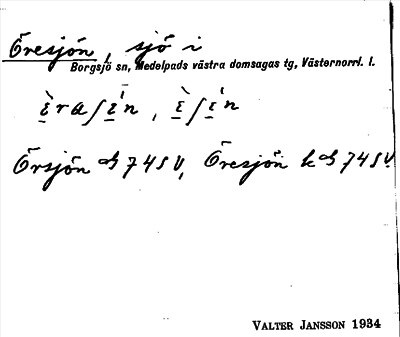 Öresjön, sjö i
Borgsjö sn, Medelpads västra domsagas tg, Västernorrl. l.
Örsjön 74 SV, Öresjön k 74 SV.
VALTER JANSSON 1934